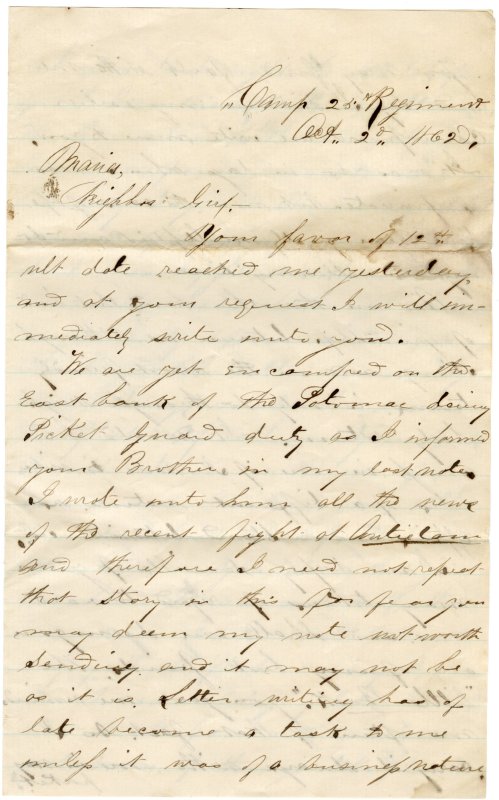 Camp 25th Regiment
Oct. 2d. 1862,
Maria,
Neighbor Girl.
Your favor of 12th.
ult date reached me yesterday
and at your request I will im-
mediately write unto you.
We are yet encamped on the
East bank of the Potomac doing
Picket Guard duty as I informed
your Brother in my last note
I wrote unto him all the news
of the recent fight at Antietam
and therefore I need not repeat
that story in this for fear you
may deem my note not worth
sending and it may not be
as it is. Letter writing has of
late become a task to me
unless it was of a business nature